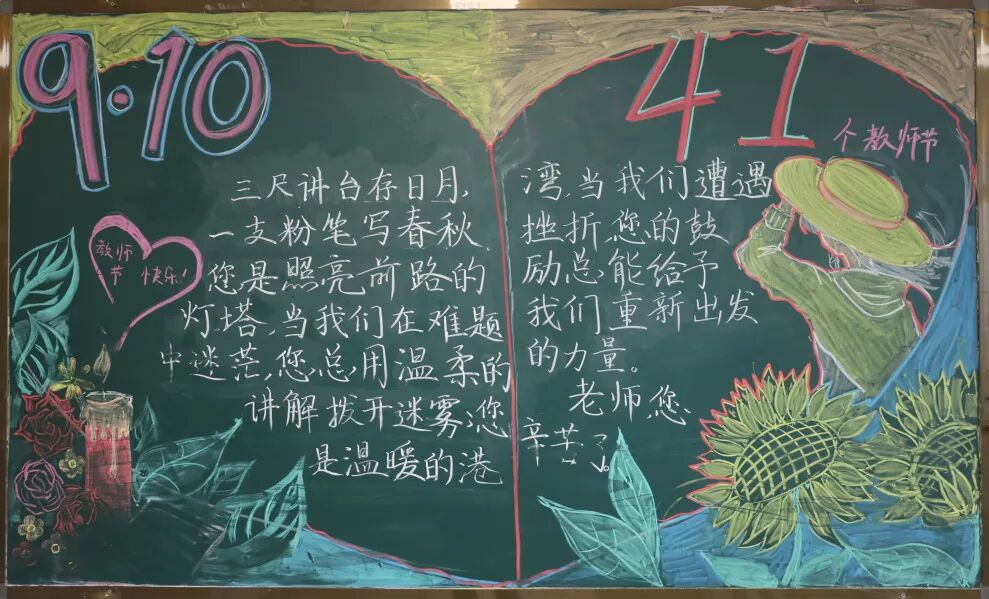 9·10
教师
节 快乐!
三尺讲台存日月,
一支粉笔写春秋.
您是照亮前路的
灯塔,当我们在难题
中迷茫,您总用温柔的
讲解拨开迷雾;您
是温暖的港
41
个教师节
湾,当我们遭遇
挫折您的鼓
励总能给予
我们重新出发
的力量。
老师您
辛苦了。